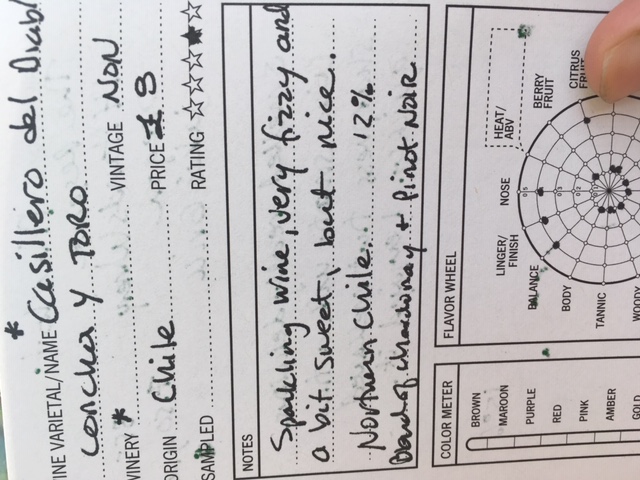 INE VARIETAL/NAME * Casillero del Diabl
Concha Y TORO
WINERY * VINTAGE NON
ORIGIN Chile PRICE 8
SAMPLED RATING
NOTES
Sparkling wine, very fizzy and
a bit sweet, but nice..
Northern Chile. 12%
of chardonnay + Pinot Noir
FLAVOR WHEEL
HEAT/
ABV
BERRY
FRUIT
CITRUS
FRUIT
NOSE
LINGER/
FINISH
BALANCE
BODY
TANNIC
WOODY
COLOR METER
BROWN
MAROON
PURPLE
RED
PINK
AMBER
GOLD